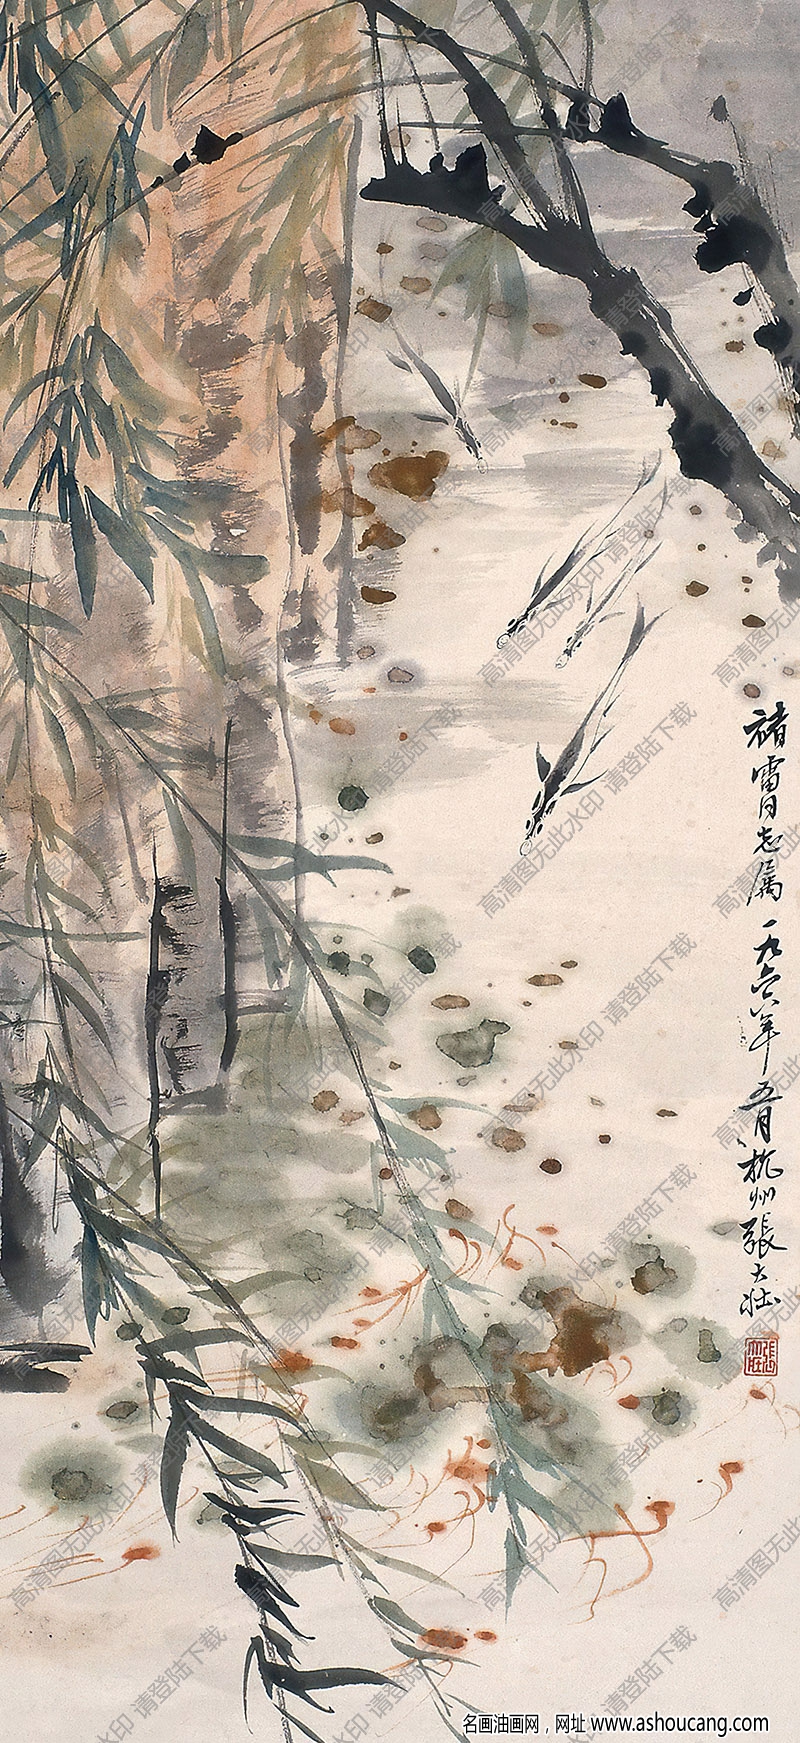 褚雷同志属 一九六八年五月 杭州張大壮
張大壯
高清图无此水印 请登陆下载
名画油画网，网址 www.ashoucang.com